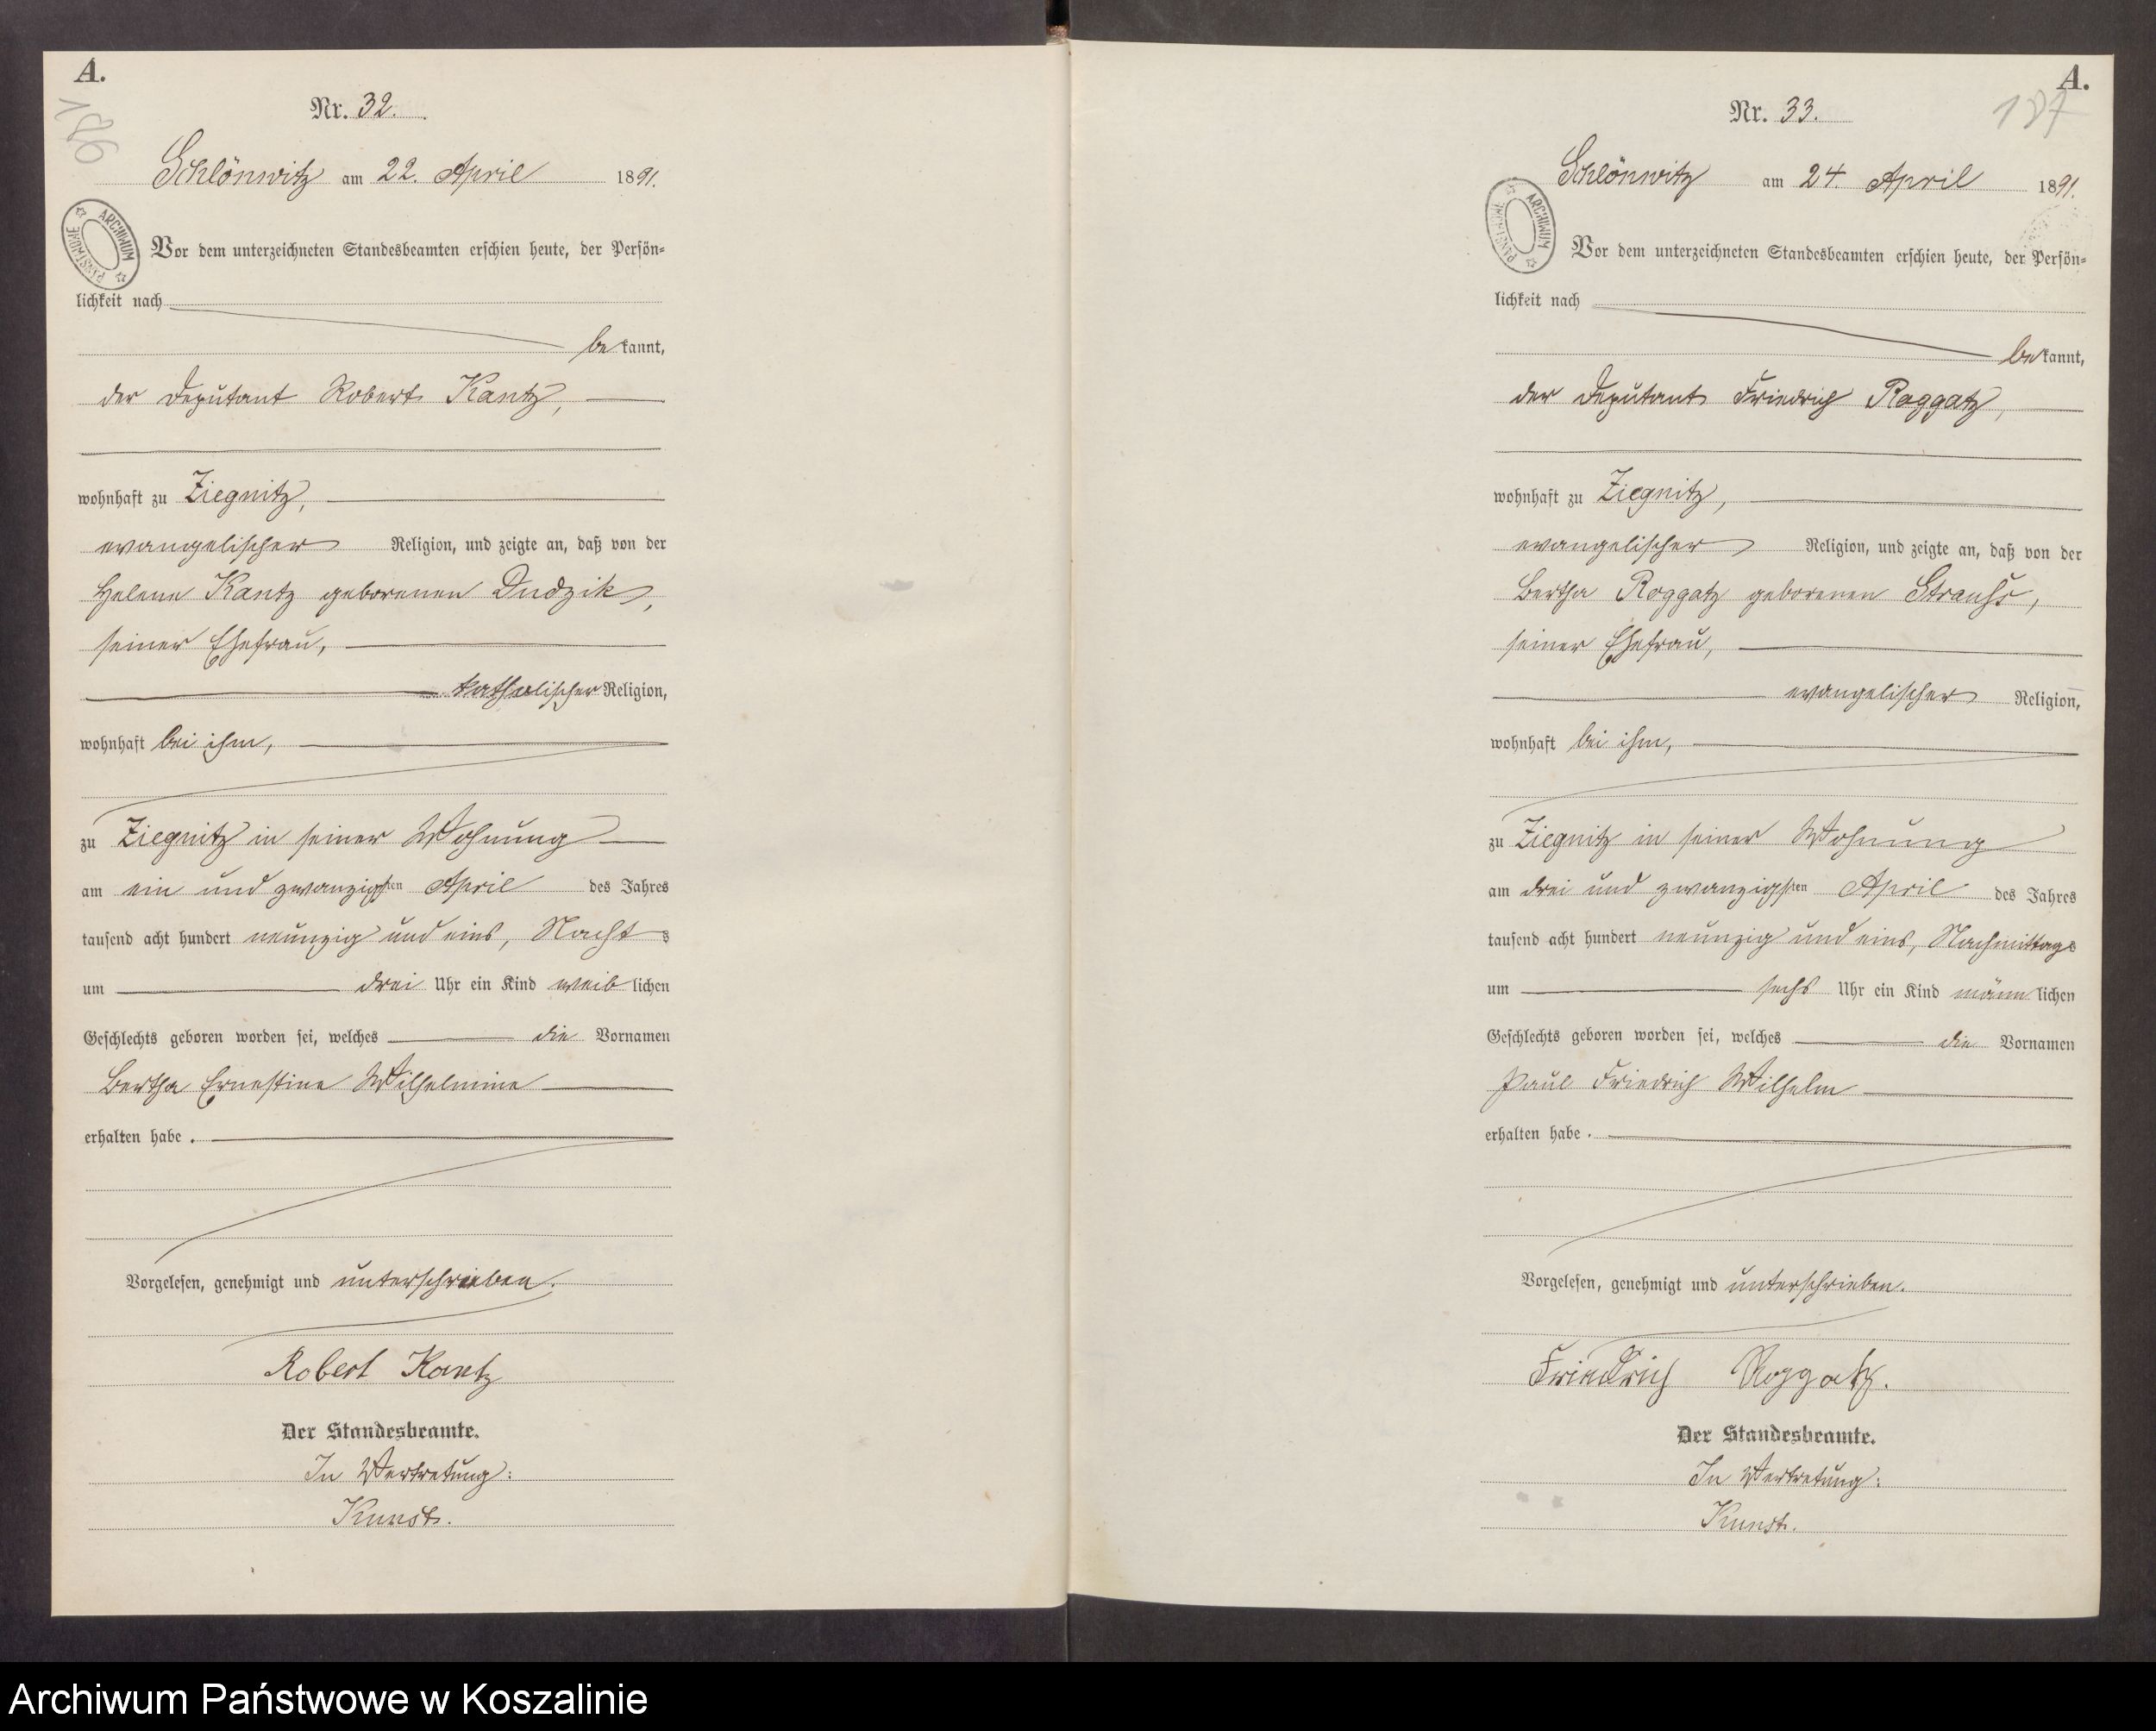 A.
Nr. 32.
Schlönwitz am 22. April 1891.
ARCHIWUM PAŃSTWOWE
Vor dem unterzeichneten Standesbeamten erschien heute, der Persön-
lichkeit nach
bekannt,
der Deputant Robert Kantz,
wohnhaft zu Ziegnitz,
evangelischer Religion, und zeigte an, daß von der
Helene Kantz geborenen Dudzik,
seiner Ehefrau,
katholischer Religion,
wohnhaft bei ihm,
zu Ziegnitz in seiner Wohnung
am ein und zwanzigsten April des Jahres
tausend acht hundert neunzig und eins, Nachts
um drei Uhr ein Kind weiblichen
Geschlechts geboren worden sei, welches die Vornamen
Bertha Ernestine Wilhelmine
erhalten habe.
Vorgelesen, genehmigt und unterschrieben.
Robert Kantz
Der Standesbeamte.
In Vertretung:
Kunst.
A.
187
Nr. 33.
Schlönwitz am 24. April 1891.
ARCHIWUM PAŃSTWOWE
Vor dem unterzeichneten Standesbeamten erschien heute, der Persön-
lichkeit nach
bekannt,
der Deputant Friedrich Roggatz,
wohnhaft zu Ziegnitz,
evangelischer Religion, und zeigte an, daß von der
Bertha Roggatz geborenen Strauß,
seiner Ehefrau,
evangelischer Religion,
wohnhaft bei ihm,
zu Ziegnitz in seiner Wohnung
am drei und zwanzigsten April des Jahres
tausend acht hundert neunzig und eins, Nachmittags
um sechs Uhr ein Kind männlichen
Geschlechts geboren worden sei, welches die Vornamen
Paul Friedrich Wilhelm
erhalten habe.
Vorgelesen, genehmigt und unterschrieben.
Friedrich Roggatz.
Der Standesbeamte.
In Vertretung:
Kunst.
Archiwum Państwowe w Koszalinie